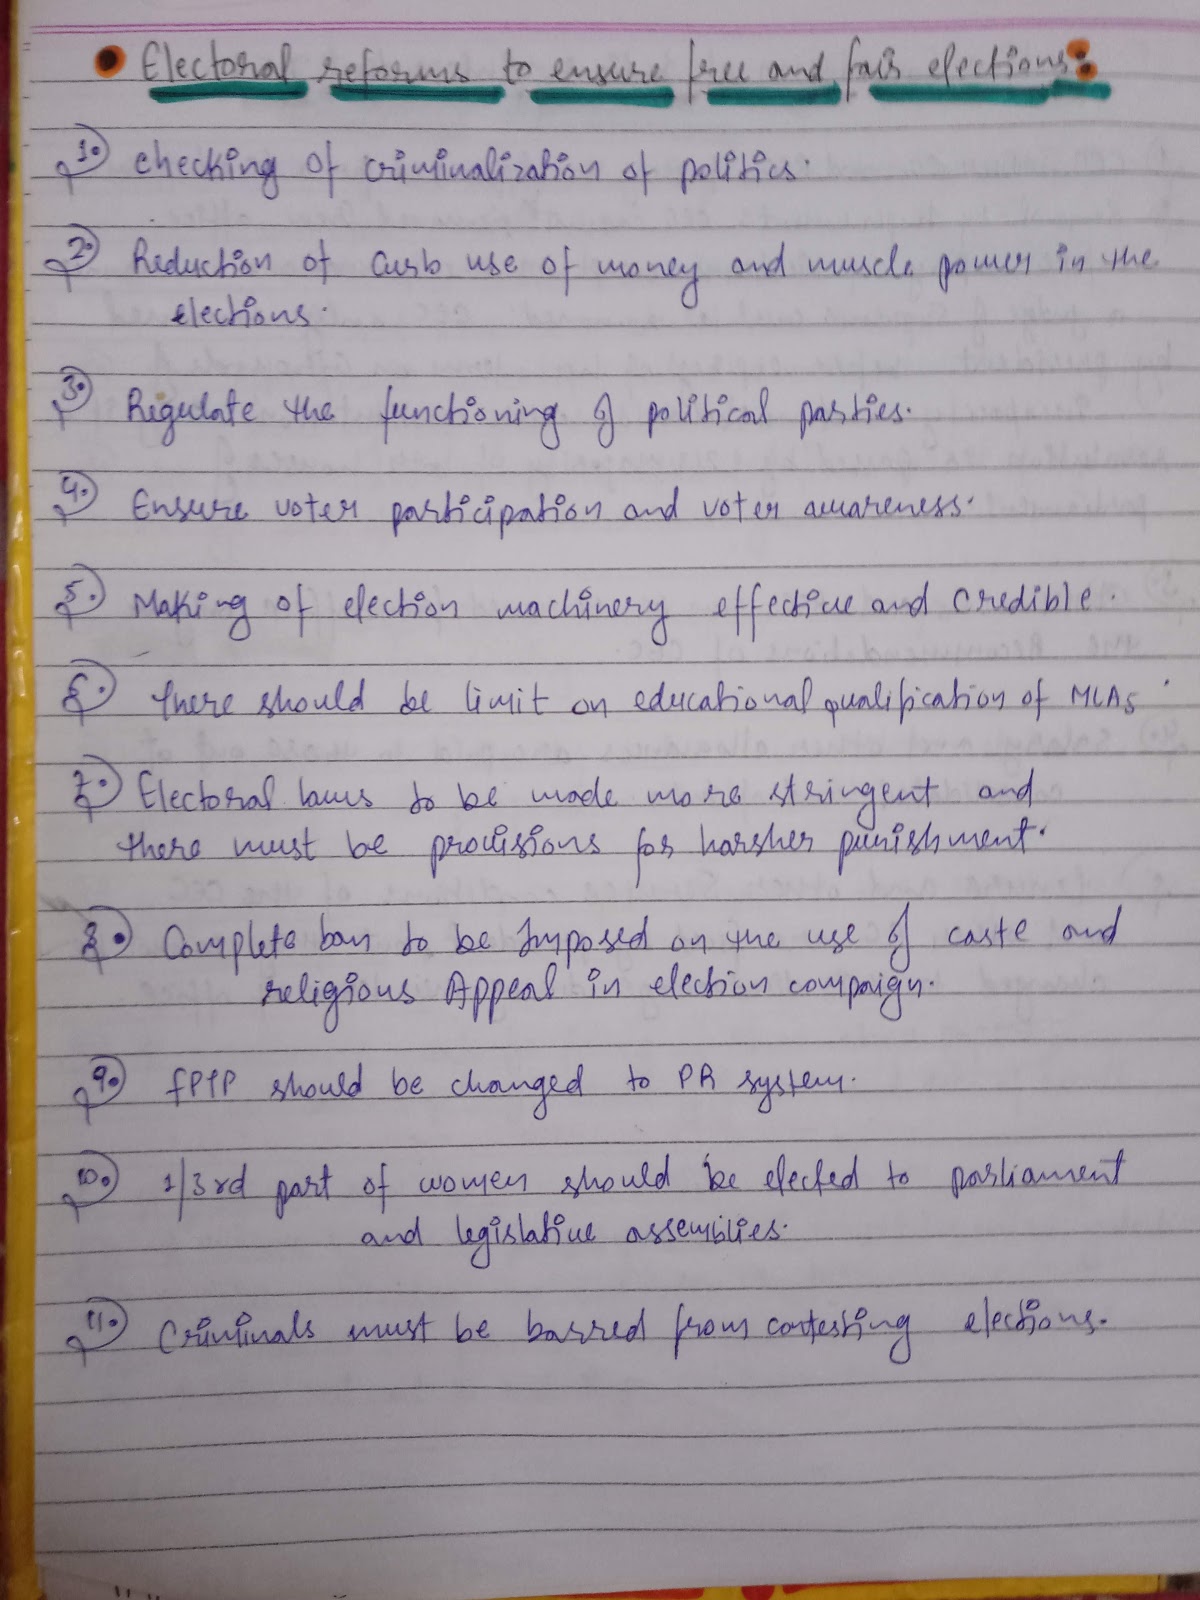 • Electoral reforms to ensure free and fair elections:
1. Checking of criminalization of politics.
2. Reduction of curb use of money and muscle power in the
elections.
3. Regulate the functioning of political parties.
4. Ensure voter participation and voter awareness.
5. Making of election machinery effective and credible.
6. there should be limit on educational qualification of MLAs.
7. Electoral laws to be made more stringent and
there must be provisions for harsher punishment.
8. Complete ban to be Imposed on the use of caste and
religious Appeal in election campaign.
9. FPTP should be changed to PR system.
10. 1/3rd part of women should be elected to parliament
and legislative assemblies.
11. Criminals must be barred from contesting elections.